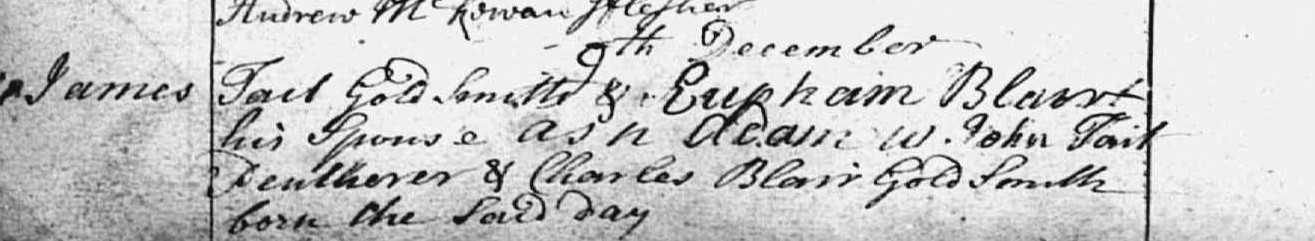 Andrew Mc Kowan fflesher
9th December
James Tait Gold Smith & Eupham Blair
his Spouse a s n Adam w. John Tait
Peutherer & Charles Blair Gold Smith
born the Said day